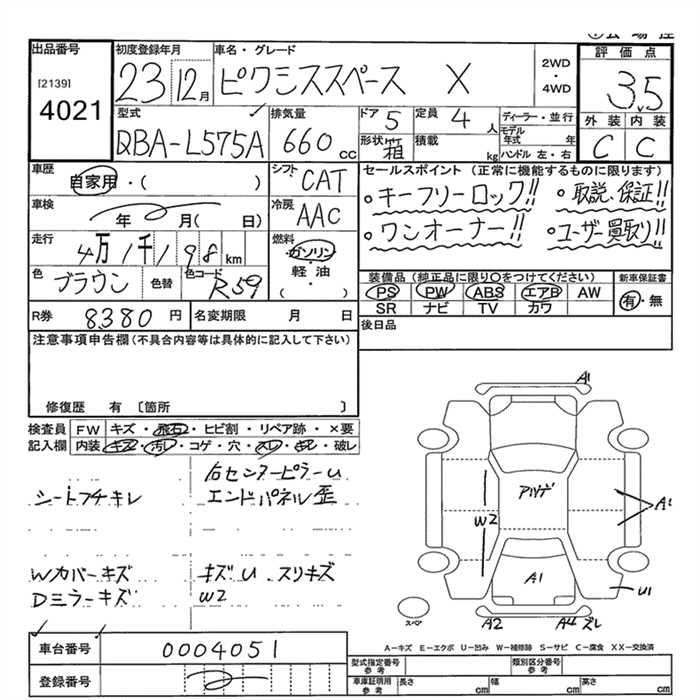 出品番号
[2139]
4021
初度登録年月
23 12月
車名・グレード
ピクシススペース X
2WD
・
4WD
評価点
3.5
型式
QBA-L575A
排気量
660 cc
ドア 5
定員 4 人
形状 箱
積載 kg
ディーラー・並行
モデル年式 年
ハンドル 左・右
外装 内装
C C
車歴
自家用・( )
シフト CAT
車検
年 月( 日)
冷房 AAC
走行
4万1千198 km
燃料
ガソリン
軽・油
( ・ )
色 ブラウン 色替 色コード R59
セールスポイント(正常に機能するものに限ります)
・キーフリーロック!! ・取説、保証!!
・ワンオーナー!! ・ユーザー買取り!!
装備品(純正品に限り○をつけてください)
新車保証書
PS PW ABS エアB AW
SR ナビ TV カワ
有・無
後日品
R券 8380 円
名変期限 月 日
注意事項申告欄(不具合内容等は具体的に記入して下さい)
修復歴 有 〔箇所 〕
検査員記入欄
FW キズ・飛石・ヒビ割・リペア跡・×要
内装 キズ・汚レ・コゲ・穴・スレ・キレ・破レ
右センターピラーU
シートフチキレ エンドパネル歪
Wカバーキズ キズU スリキズ
Dミラーキズ W2
A1
アリゲ
W2
A1
A1
U1
スペア
A2 A4 ズレ
A-キズ E-エクボ U-凹み W-補修跡 S-サビ C-腐食 XX-交換済
車台番号 0004051
登録番号
型式指定番号 参考
類別区分番号 参考
車庫証明用 参考
長さ cm 幅 cm 高さ cm